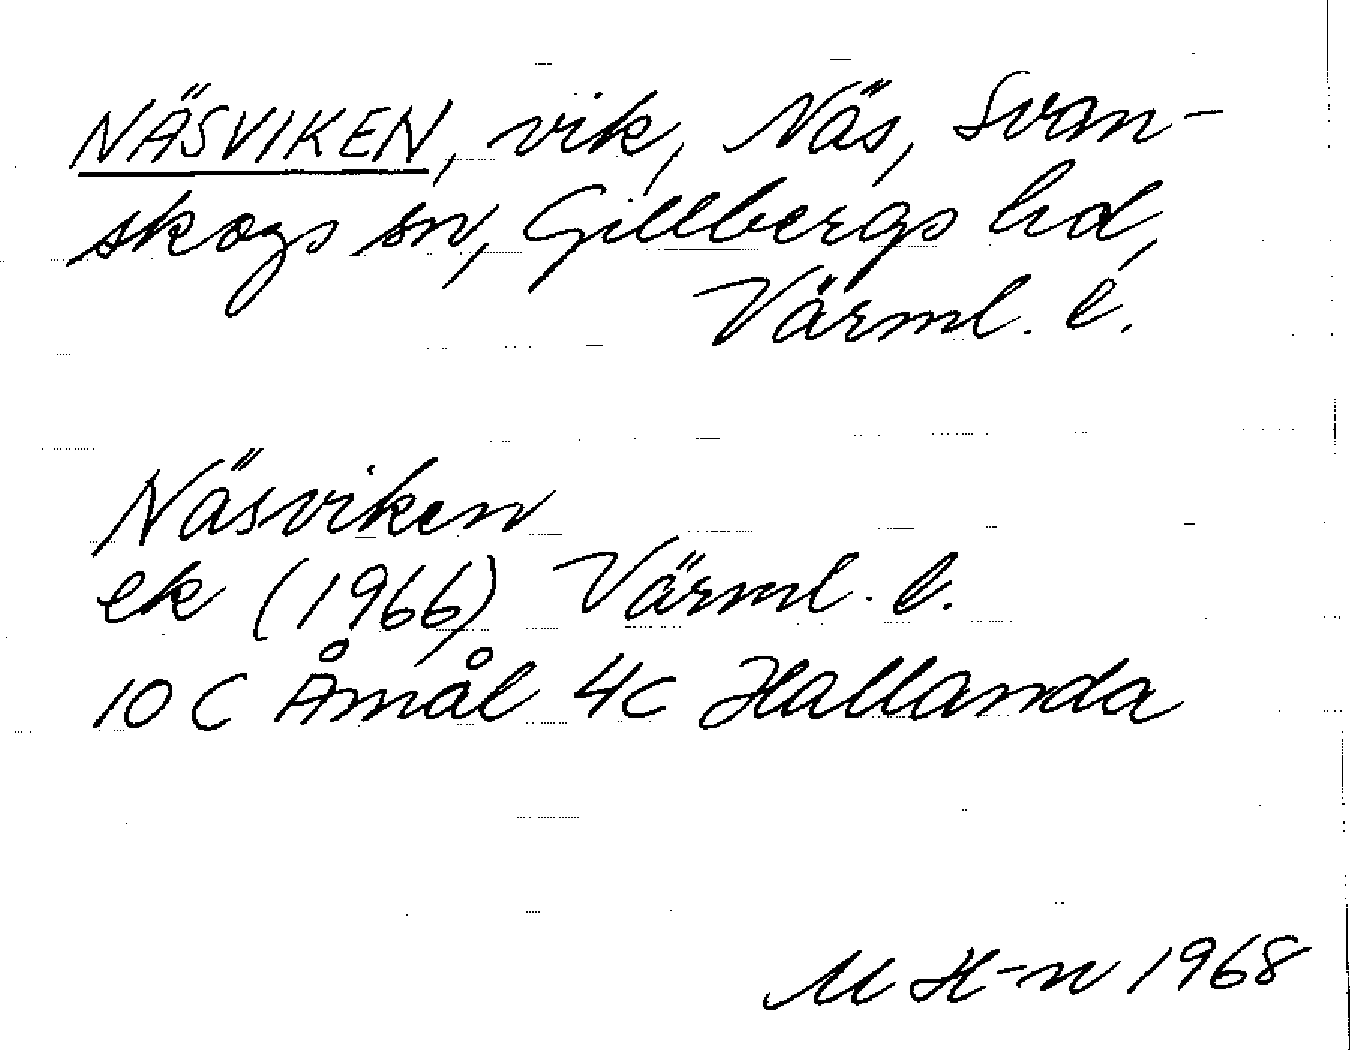 NÄSVIKEN, vik, Näs, Svan-
skogs sn, Gillbergs hd,
Värml. l.
Näsviken
ek (1966) Värml. l.
10 C Åmål 4c Hallanda
M H-n 1968